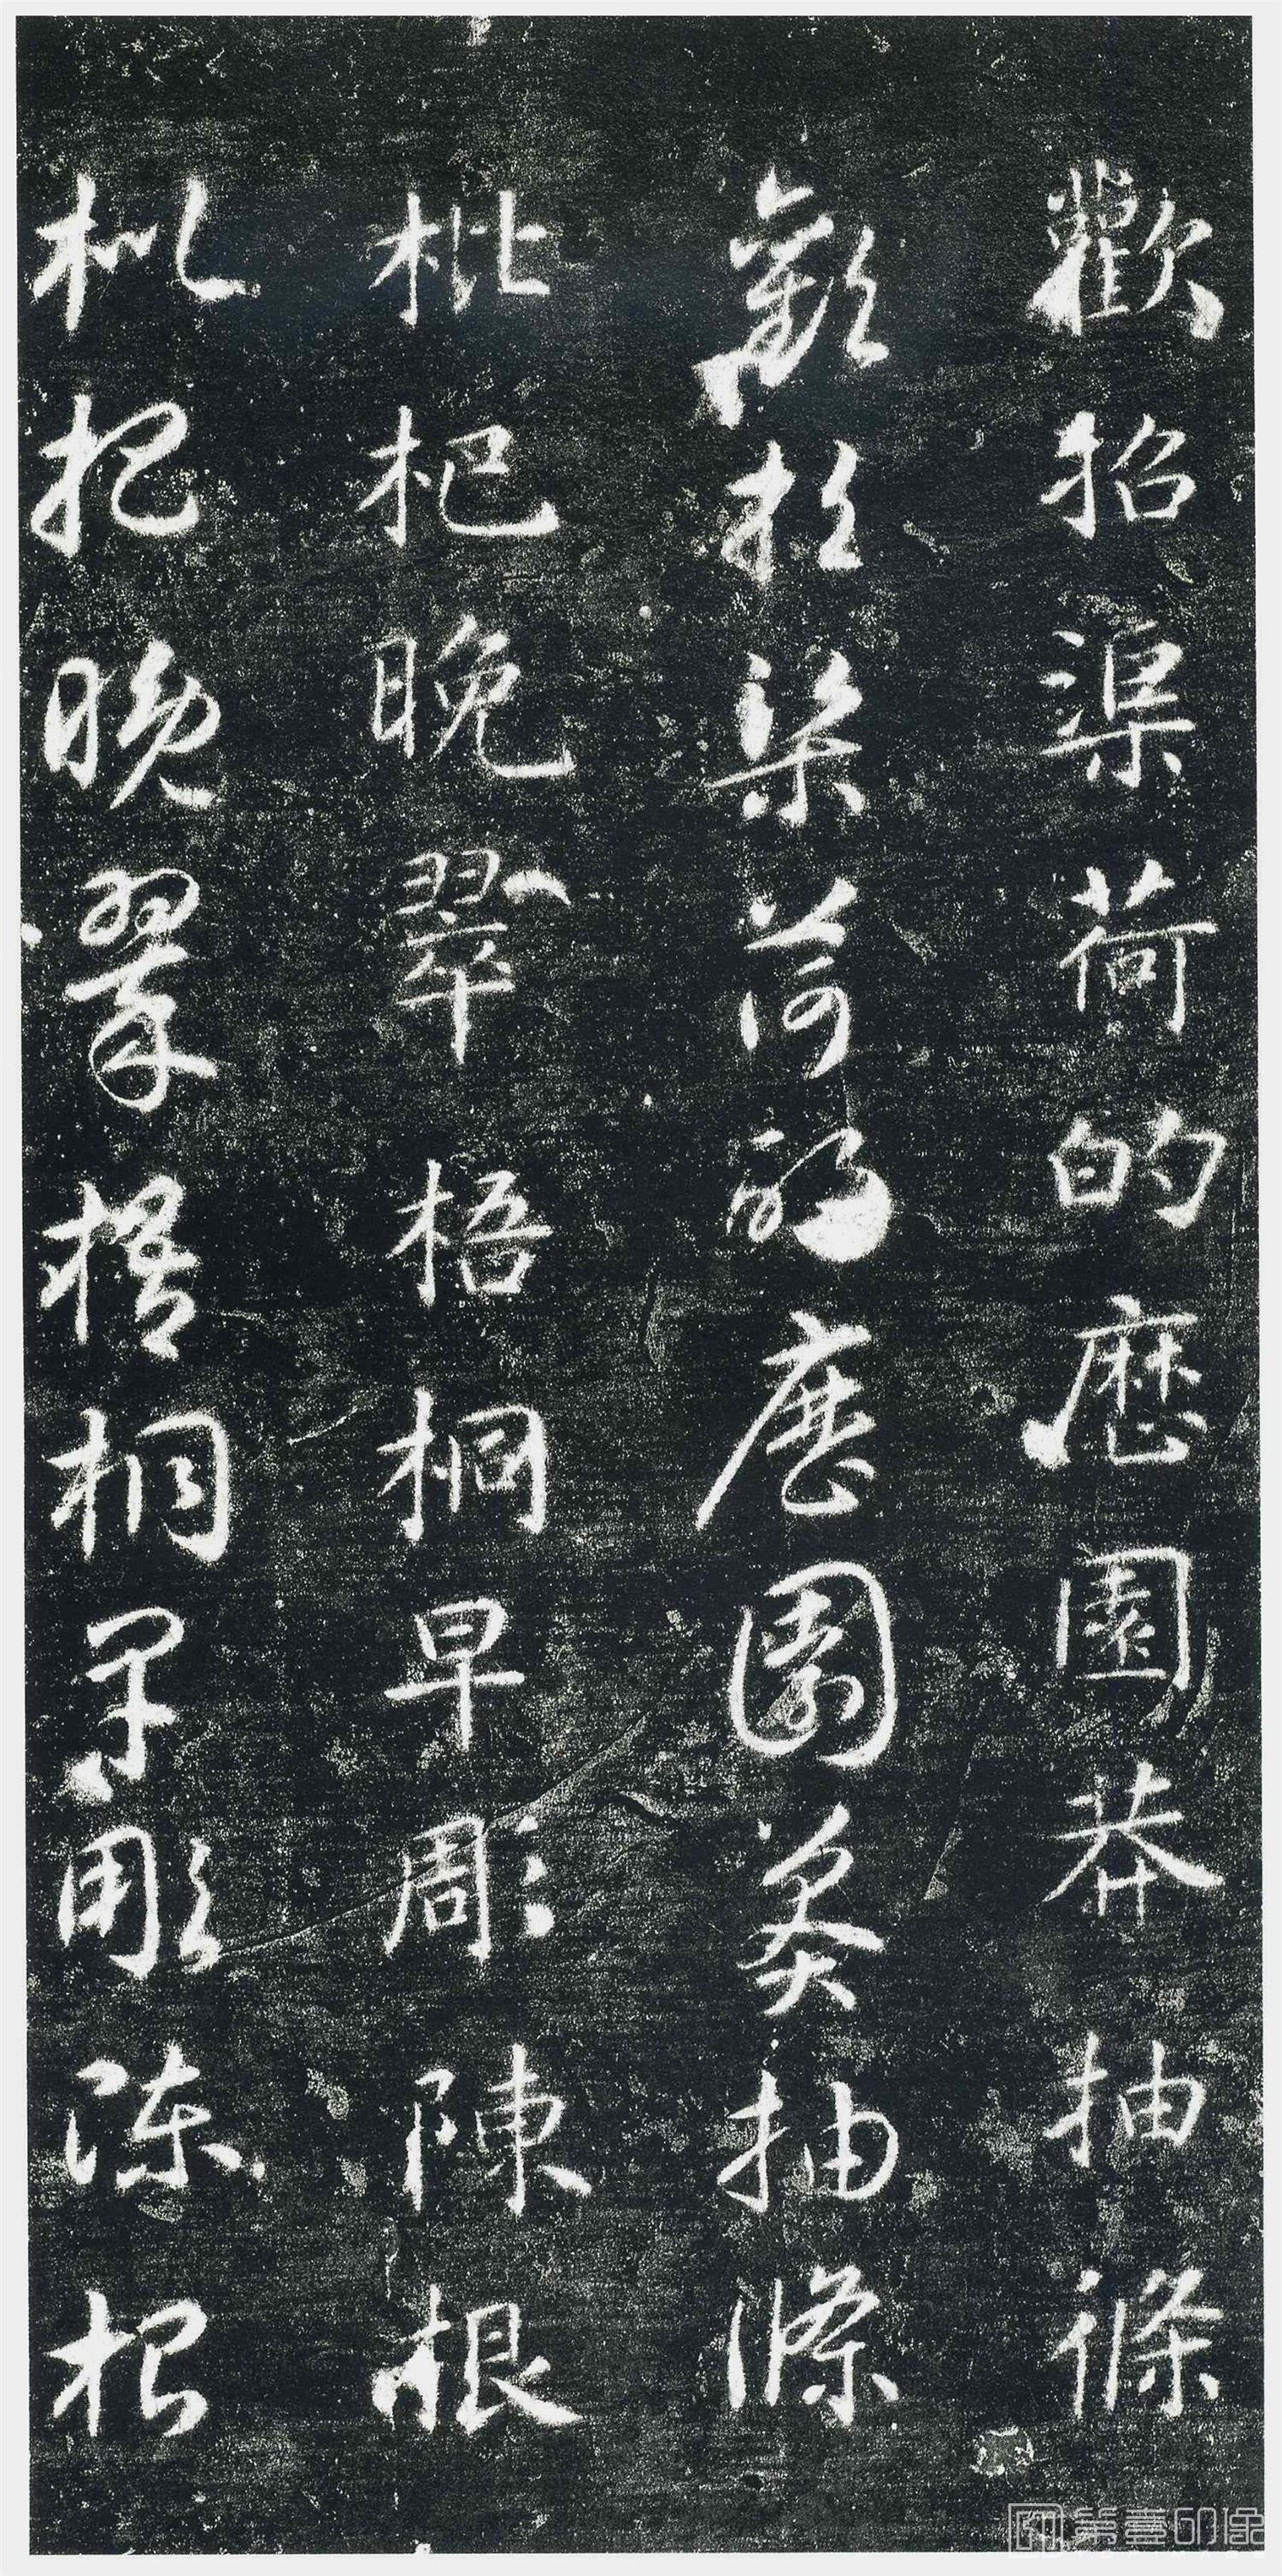 歡招渠荷的歷園莽抽條
歡招渠荷的歷園莽抽條
枇杷晚翠梧桐早彫陳根
枇杷晚翠梧桐早彫陳根
第壹印像